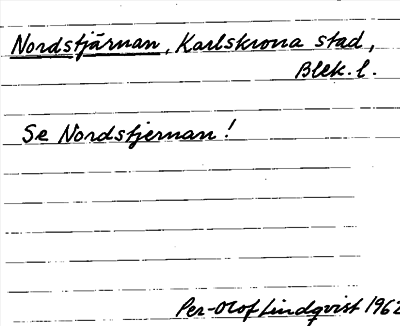 Nordstjärnan, Karlskrona stad,
Blek. l.
Se Nordstjernan!
Per-Olof Lindqvist 1962